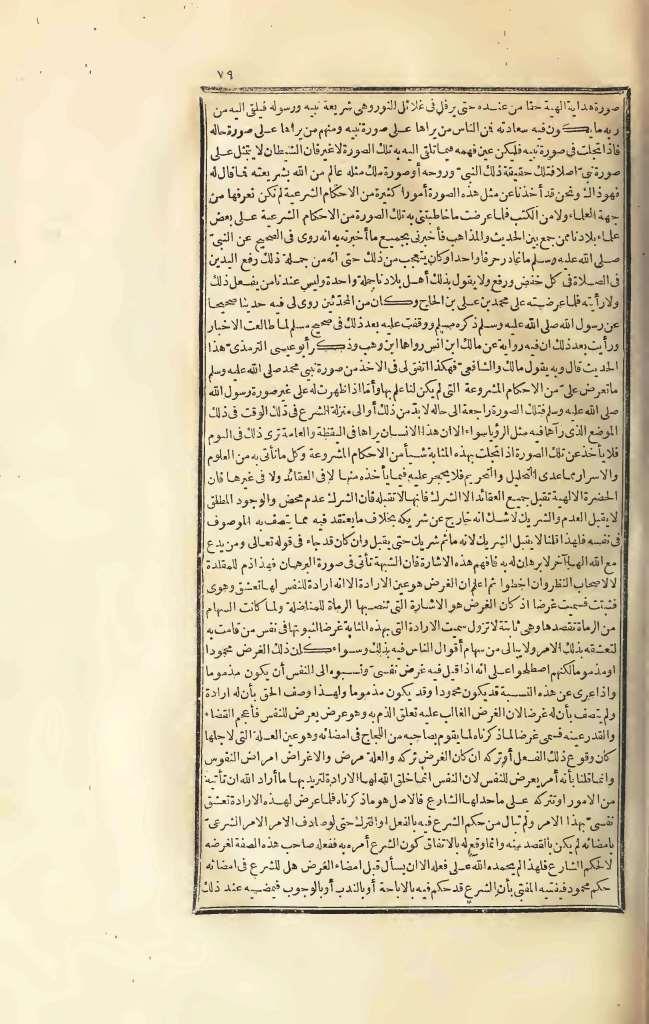 ٧٩
صورة هداية الهية حقا من عنده حتى يرفل فى غلائل النور وهى شريعة نبيه ورسوله فيلقى اليه من
ربه ما يكون فيه سعادته فمن الناس من يراها على صورة نبيه ومنهم من يراها على صورة حاله
فاذا تجلت فى صورة نبيه فليكن عين فهمه فيما تلقى اليه به تلك الصورة لا غير فان الشيطان لا يتمثل على
صورة نبى اصلا فتلك حقيقة ذلك النبى وروحه أو صورة ملك مثله عالم من الله بشريعته فما قال له
فهو ذاك ونحن قد أخذنا عن مثل هذه الصورة أمورا كثيرة من الاحكام الشرعية لم نكن نعرفها من
جهة العلماء ولا من الكتب فلما عرضت ما خاطبتنى به تلك الصورة من الاحكام الشرعية على بعض
علماء بلادنا ممن جمع بين الحديث والمذاهب فأخبرنى بجميع ما أخبرته به انه روى فى الصحيح عن النبى
صلى الله عليه وسلم ما غادر حرفا واحدا وكان يتعجب من ذلك حتى انه من جملة ذلك رفع اليدين
فى الصلاة فى كل خفض ورفع ولا يقول بذلك أهل بلادنا جملة واحدة وليس عندنا من يفعل ذلك
ولا رأيته فلما عرضته على محمد بن على بن الحاج وكان من المحدثين روى لى فيه حديثا صحيحا
عن رسول الله صلى الله عليه وسلم ذكره مسلم ووقفت عليه بعد ذلك فى صحيح مسلم لما طالعت الاخبار
ورأيت بعد ذلك ان فيه رواية عن مالك ابن انس رواها ابن وهب وذكر أبو عيسى الترمذى هذا
الحديث قال وبه يقول مالك والشافعى فهكذا اتفق لى فى الاخذ من صورة نبى محمد صلى الله عليه وسلم
ما تعرض على من الاحكام المشروعة التى لم يكن لنا علم بها وأما اذا ظهرت له على غير صورة رسول الله
صلى الله عليه وسلم فتلك الصورة راجعة الى حاله لا بد من ذلك أو الى منزلة الشرع فى ذلك الوقت فى ذلك
الموضع الذى رآها فيه مثل الرؤيا سواء الا ان هذا الانسان يراها فى اليقظة والعامة ترى ذلك فى النوم
فلا يأخذ عن تلك الصورة اذا تجلت بهذه المثابة شيأ من الاحكام المشروعة وكل ما تأتى به من العلوم
والاسرار مما عدى التحليل والتحريم فلا يحجير عليه فيما يأخذه منها لا فى العقائد ولا فى غيرها فان
الحضرة الالهية تقبل جميع العقائد الا الشرك فانها لا تقبله فان الشرك عدم محض والوجود المطلق
لا يقبل العدم والشريك لا شك انه خارج عن شريكه بخلاف ما يعتقد فيه مما يتصف به الموصوف
فى نفسه فلهذا قلنا لا يقبل الشريك لانه ما ثم شريك حتى يقبل وان كان قد جاء فى قوله تعالى ومن يدع
مع الله الها آخر لا برهان له به فافهم هذه الاشارة فان الشبهة تأتى فى صورة البرهان فهذا ذم للمقلدة
لا لاصحاب النظر وان اخطوا ثم اعلم ان الغرض هو عين الارادة الا انه ارادة للنفس لها تعشق وهوى
فثبتت فسميت غرضا اذ كان الغرض هو الاشارة التى تنصبها الرماة للمناضلة ولما كانت السهام
من الرماة تقصدها وهى ثابتة لا تزول سميت الارادة التى بهذه المثابة غرضا لثبوتها فى نفس من قامت به
لتعشقه بذلك الامر ولا يبالى من سهام أقوال الناس فيه بذلك وسواء كان ذلك الغرض محمودا
او مذموما لكنهم اصطلحوا على انه اذا قيل فيه غرض نفسى ونسبوه الى للنفس أن يكون مذموما
واذا عرى عن هذه النسبة قد يكون محمودا وقد يكون مذموما ولهذا وصف الحق بأن له ارادة
ولم يتصف بأن له غرضا لان الغرض الغالب عليه تعلق الذم به وهو عرض يعرض للنفس فأعجم القضاء
والقدر عينه فسمى غرضا لما ذكرناه لما يقوم بصاحبه من اللجاج فى امضائه وهو عين العلة التى لاجلها
كان وقوع ذلك الفعل أو تركه ان كان الغرض تركه والعلة مرض والاغراض امراض النفوس
وانما قلنا بأنه أمر يعرض للنفس لان النفس انما خلق الله لها الارادة لتريد بها ما أراد الله ان تأتيه
من الامور او تتركه على ما حد لها الشارع فالاصل هو ما ذكرناه فلما عرض لهذه الارادة تعشق
نفسى بهذا الامر ولم تبال من حكم الشرع فيه بالفعل او الترك حتى لو صادف الامر الامر الشرعى
بامضائه لم يكن بالقصد منه وانما وقع له بالاتفاق كون الشرع أمره به ففعله صاحب هذه الصفة لغرضه
لا لحكم الشارع فلهذا لم يحمده الله على فعله الا ان يسأل قبل امضاء الغرض هل للشرع فى امضائه
حكم محمود فيفتيه المفتى بأن الشرع قد حكم فيه بالاباحة أو بالندب أو بالوجوب فيمضيه عند ذلك